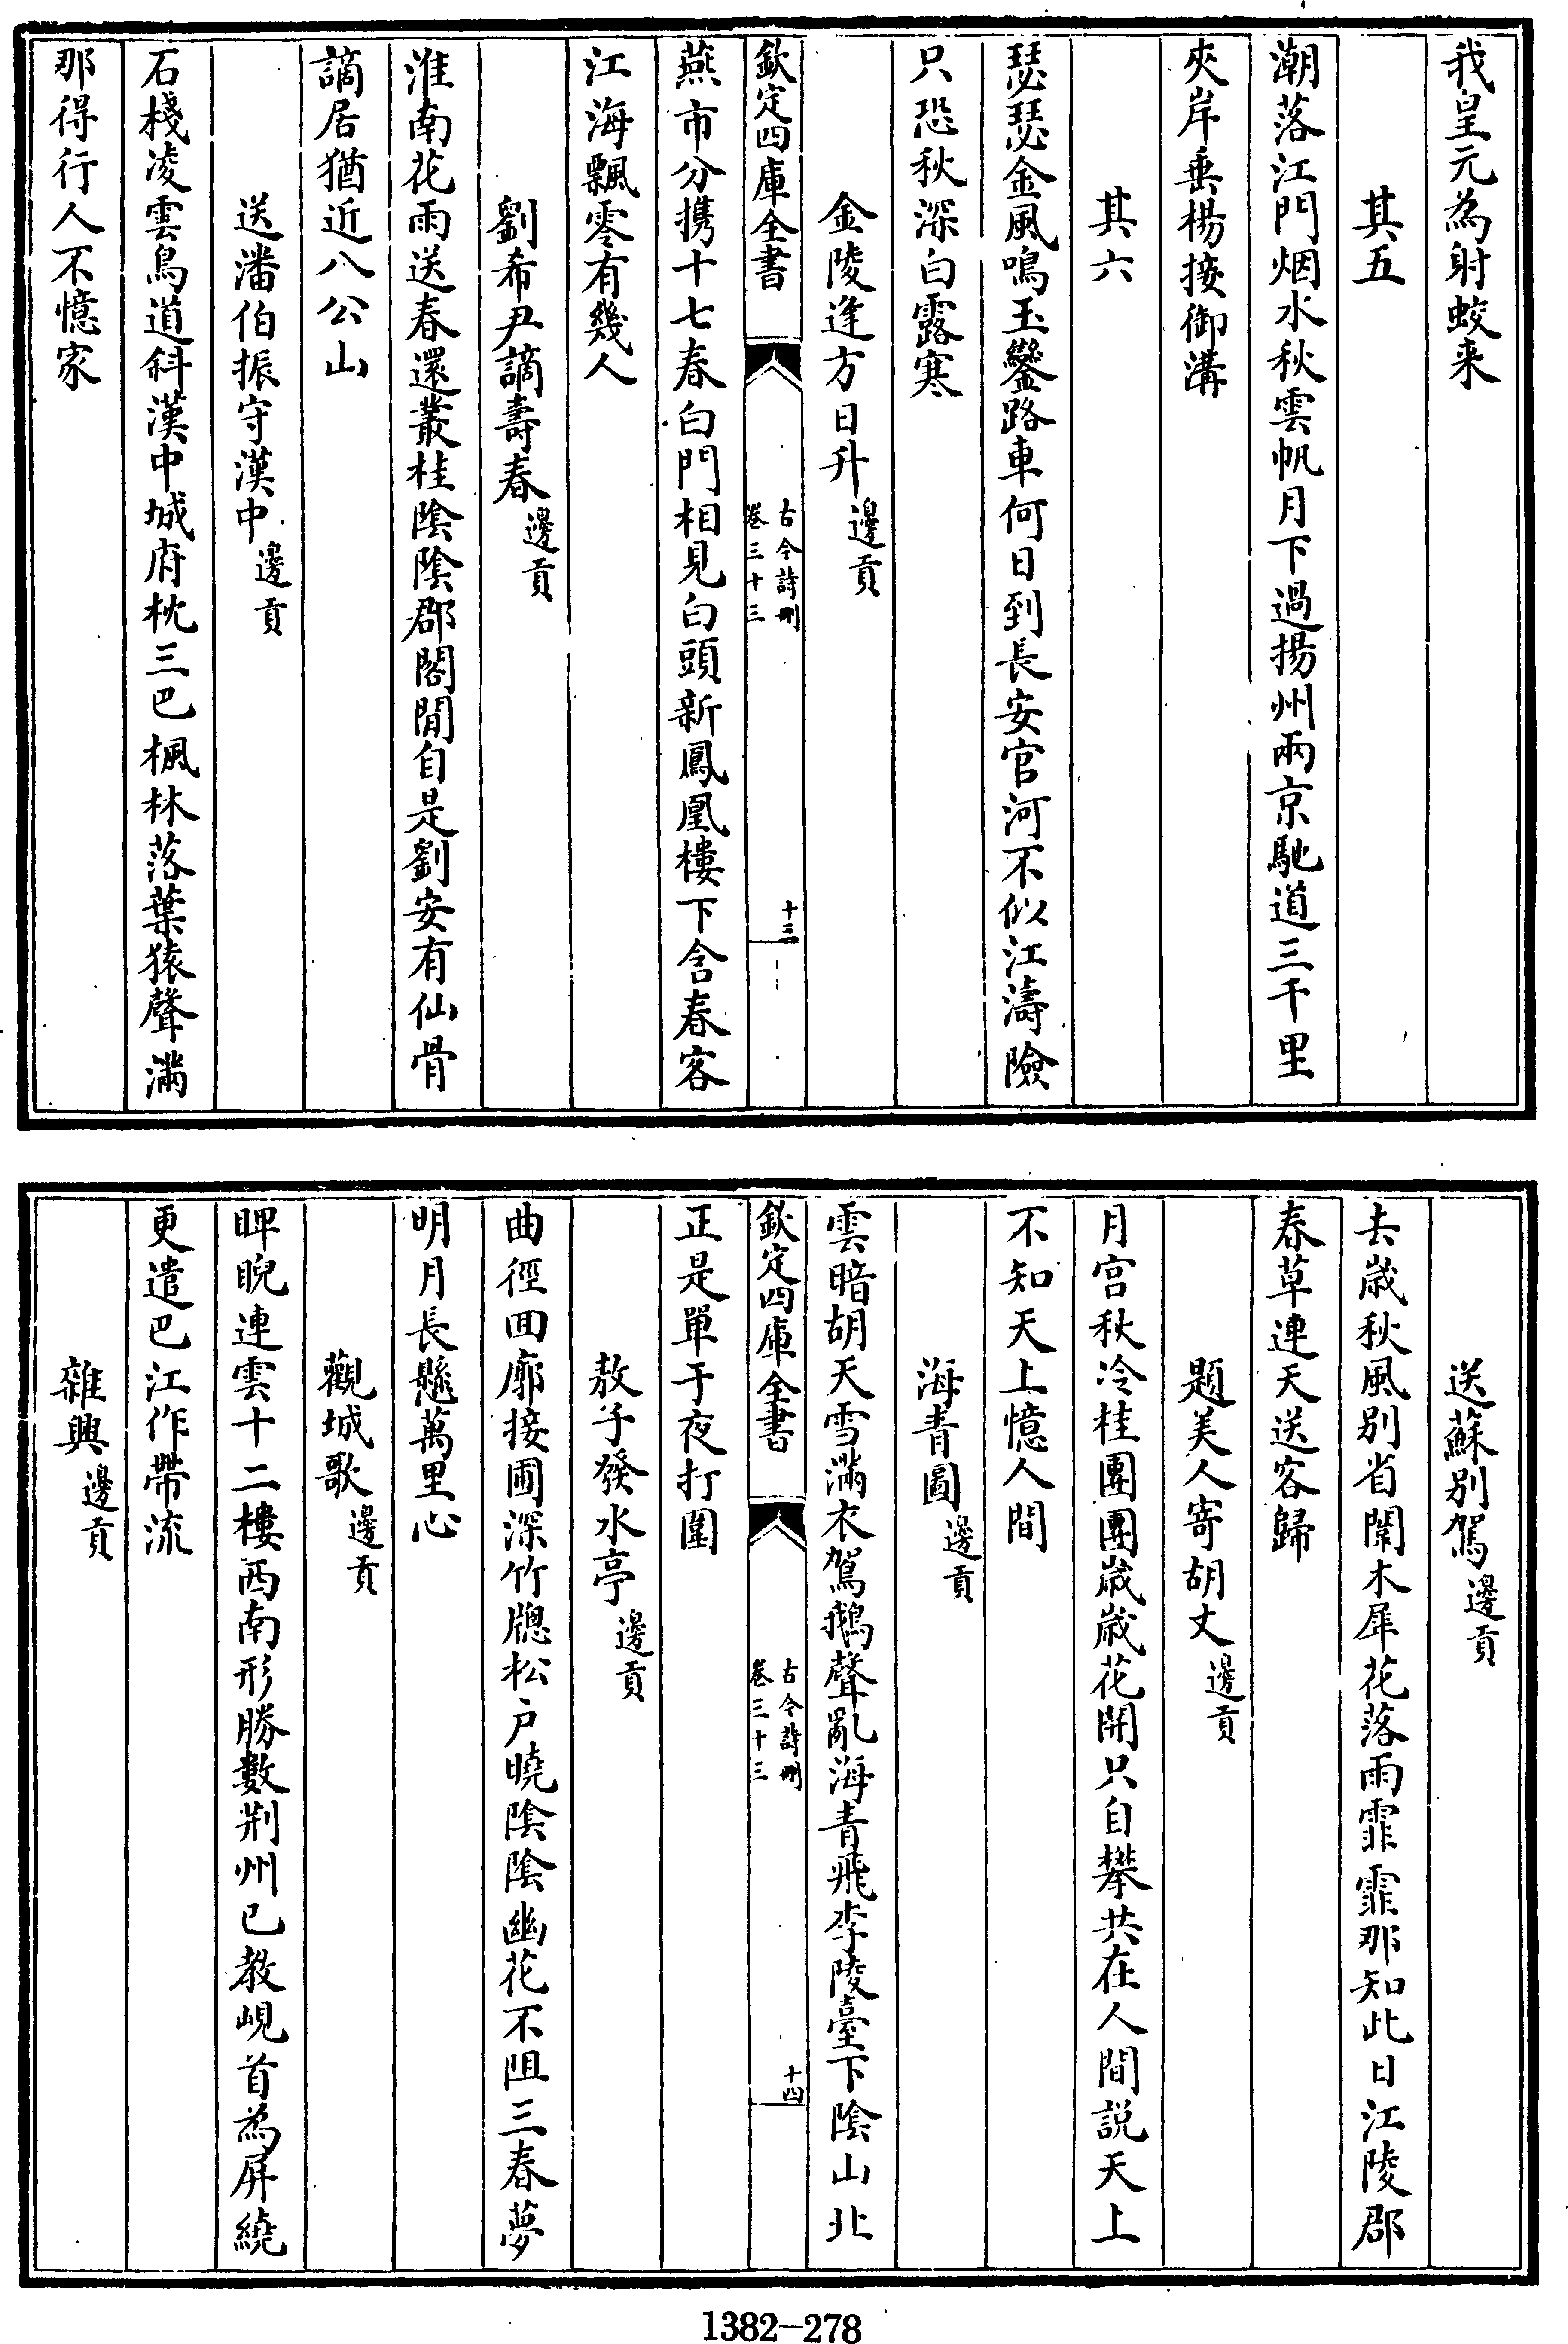 我皇元為射蛟来
其五
潮落江門烟水秋雲帆月下過揚州兩京馳道三千里
夾岸垂楊接御溝
其六
瑟瑟金風鳴玉鑾路車何日到長安官河不似江濤險
只恐秋深白露寒
金陵逢方日升邊貢
欽定四庫全書
古今詩刪
卷三十三
十三
燕市分携十七春白門相見白頭新鳳凰樓下含春客
江海飄零有幾人
劉希尹謫壽春邊貢
淮南花雨送春還叢桂陰陰郡閣間自是劉安有仙骨
謫居猶近八公山
送潘伯振守漢中邊貢
石棧凌雲鳥道斜漢中城府枕三巴楓林落葉猿聲滿
那得行人不憶家
送蘇別駕邊貢
去歲秋風别省闈木犀花落雨霏霏那知此日江陵郡
春草連天送客歸
題美人寄胡丈邊貢
月宫秋冷桂團團歲歲花開只自攀共在人間説天上
不知天上憶人間
海青圖邊貢
雲暗胡天雪滿衣鴐鵝聲亂海青飛李陵臺下陰山北
正是單于夜打圍
欽定四庫全書
古今詩刪
卷三十三
十四
敖子發水亭邊貢
曲徑囬廓接圃深竹牕松户曉陰陰幽花不阻三春夢
明月長懸萬里心
觀城歌邊貢
睥睨連雲十二樓西南形勝數荆州已教峴首為屏繞
更遣巴江作帶流
雜興邊貢
1382-278